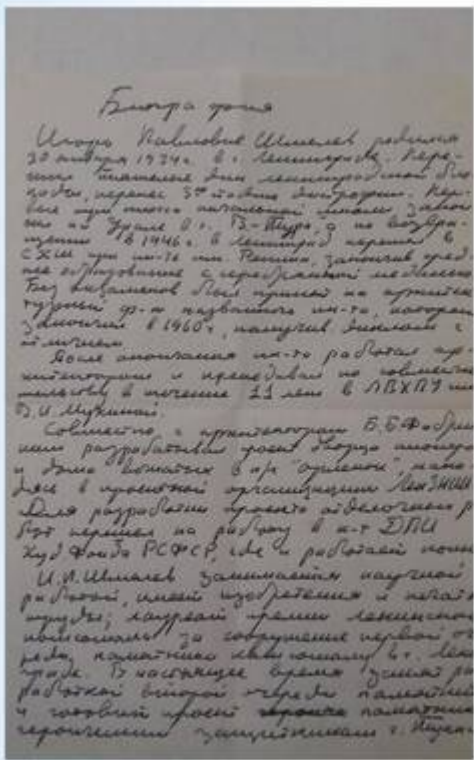 Биография
Игорь Павлович Шмелев родился
30 января 1934 г. в г. Ленинграде. Пере-
жил тяжелые дни ленинградской бло
кады, перенес 3ю стадию дистрофии. Пер
вые три класса начальной школы закон
чил на Урале в г. В.-Тура, а по возвра-
щении в 1946 г. в Ленинград перешел в
СХШ при ин-те им. Репина, закончив сред
нее образование с серебряной медалью
Без экзаменов был принят на архитек
турный ф-т названного ин-та, который
закончил в 1960 г., получив диплом с
отличием
После окончания ин-та работал ар
хитектором и преподавал по совмести
тельству в течение 11 лет в ЛВХПУ им
В.И. Мухиной.
Совместно с архитектором Б.Б. Фабри
ким разрабатывал проект дворца пионеров
и дома вожатых в п/л "Орленок", нахо
дясь в проектной организации ЛенЗНИИ
Для разработки проекта отделочных р
бот перешел на работу в к-т ДПИ
Худ Фонда РСФСР, где и работает
И.П. Шмелев занимается научной
работой, имеет изобретения и печатн
труды; лауреат премии Ленинского
комсомола за сооружение первой оч
реди памятника комсомолу в г. Лен
граде. В настоящее время занят ра
работкой второй очереди памятника
и готовит проект памятника
героическим защитникам г.